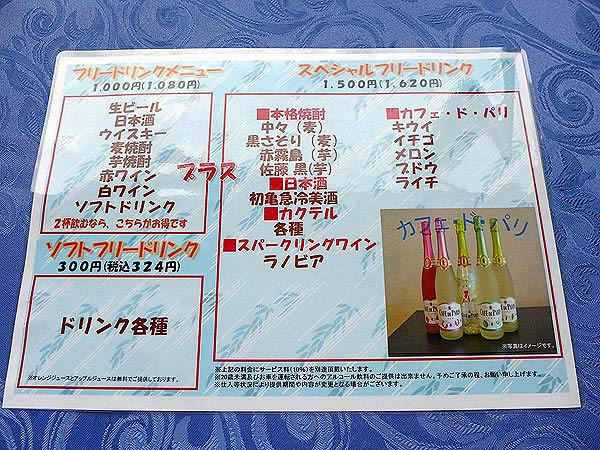 フリードリンクメニュー
1.000円(1.080円)
生ビール
日本酒
ウイスキー
麦焼酎
芋焼酎
赤ワイン
白ワイン
ソフトドリンク
2杯飲むなら、こちらがお得です
ソフトフリードリンク
300円(税込324円)
ドリンク各種
※オレンジジュースとアップルジュースは無料でご提供しております。
プラス
スペシャルフリードリンク
1.500円(1.620円)
■本格焼酎
中々（麦）
黒さそり（麦）
赤霧島（芋）
佐藤 黒(芋)
■日本酒
初亀急冷美酒
■カクテル
各種
■スパークリングワイン
ラノビア
■カフェ・ド・パリ
キウイ
イチゴ
メロン
ブドウ
ライチ
カフェ・ド・パリ
CAFE DE PARIS
※写真はイメージです。
※上記の料金にサービス料(10%)を別途頂戴いたします。
※20歳未満及びお車を運転される方へのアルコール飲料のご提供は出来ません。予めご了承の程、お願い申し上げます。
※仕入等状況により提供期間や内容が変更となる場合がございます。